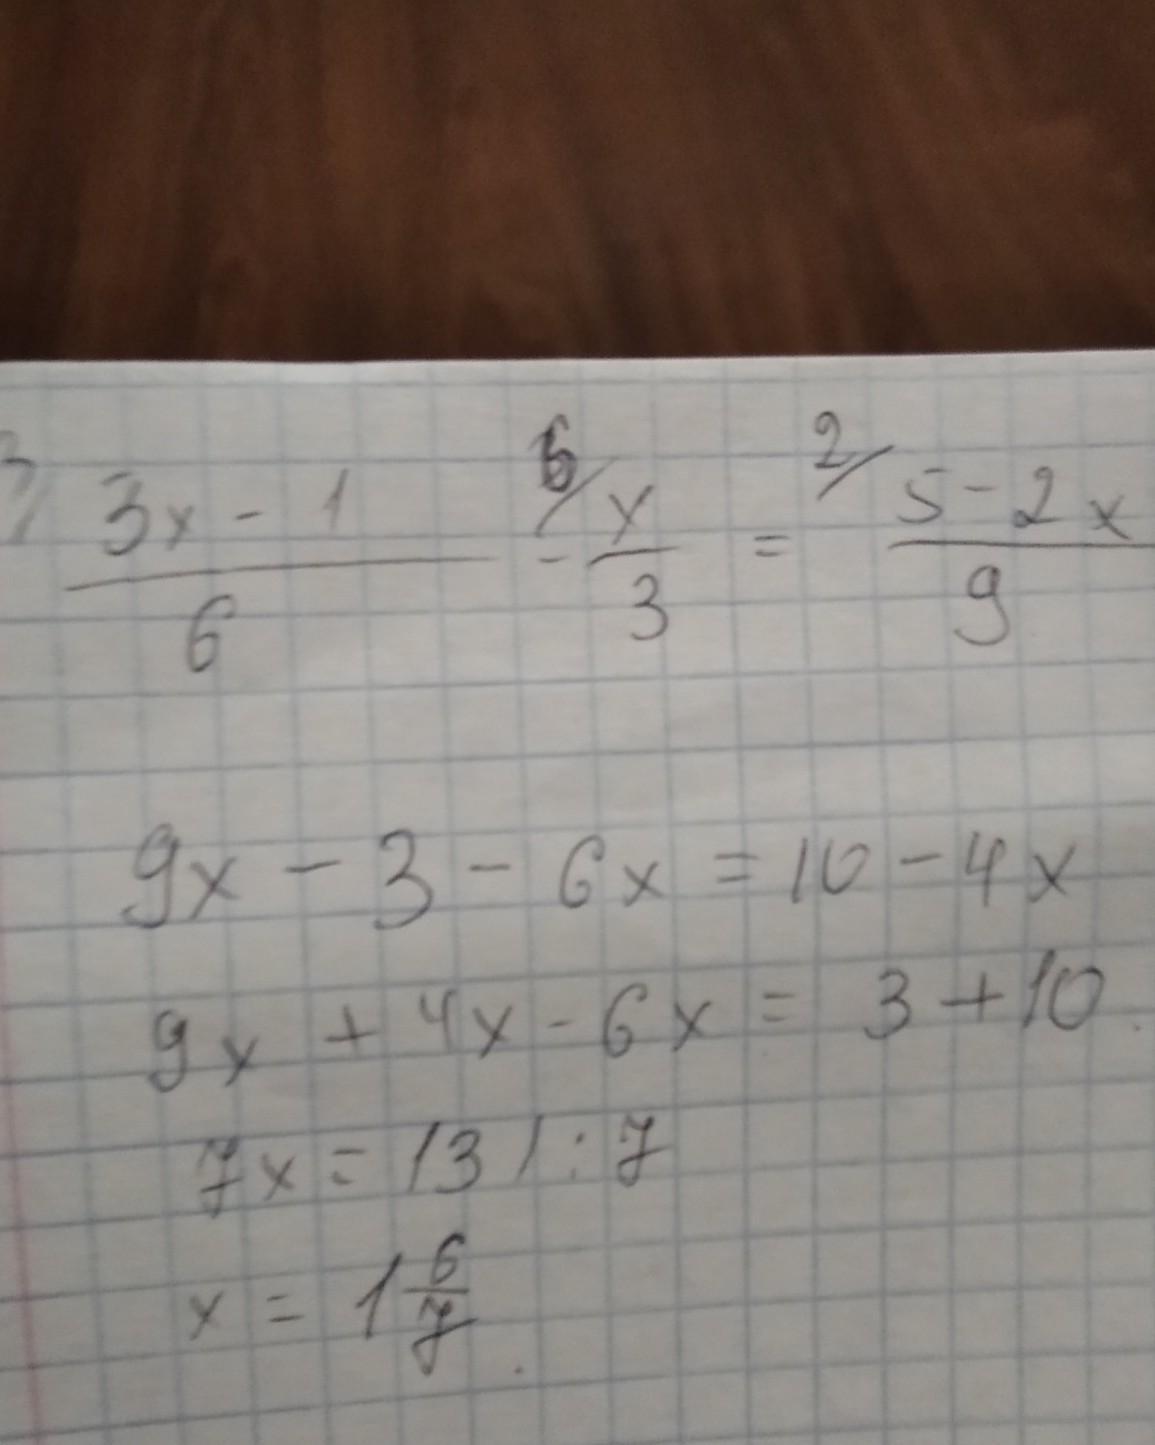 3/ (3x - 1)/6 - 6/ x/3 = 2/ (5 - 2x)/9
9x - 3 - 6x = 10 - 4x
9x + 4x - 6x = 3 + 10
7x = 13 | : 7
x = 1 6/7.